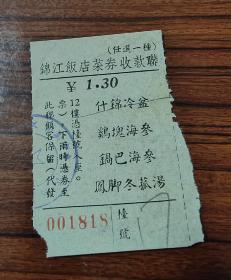 (任選一種)
錦江飯店菜券收款聯
¥ 1.30
什錦冷盆
鷄塊海參
鍋巴海參
鳳脚冬菰湯
12樓憑檯號入座。
票）下兩時憑券至
此聯顧客保留（代發
001818 檯號